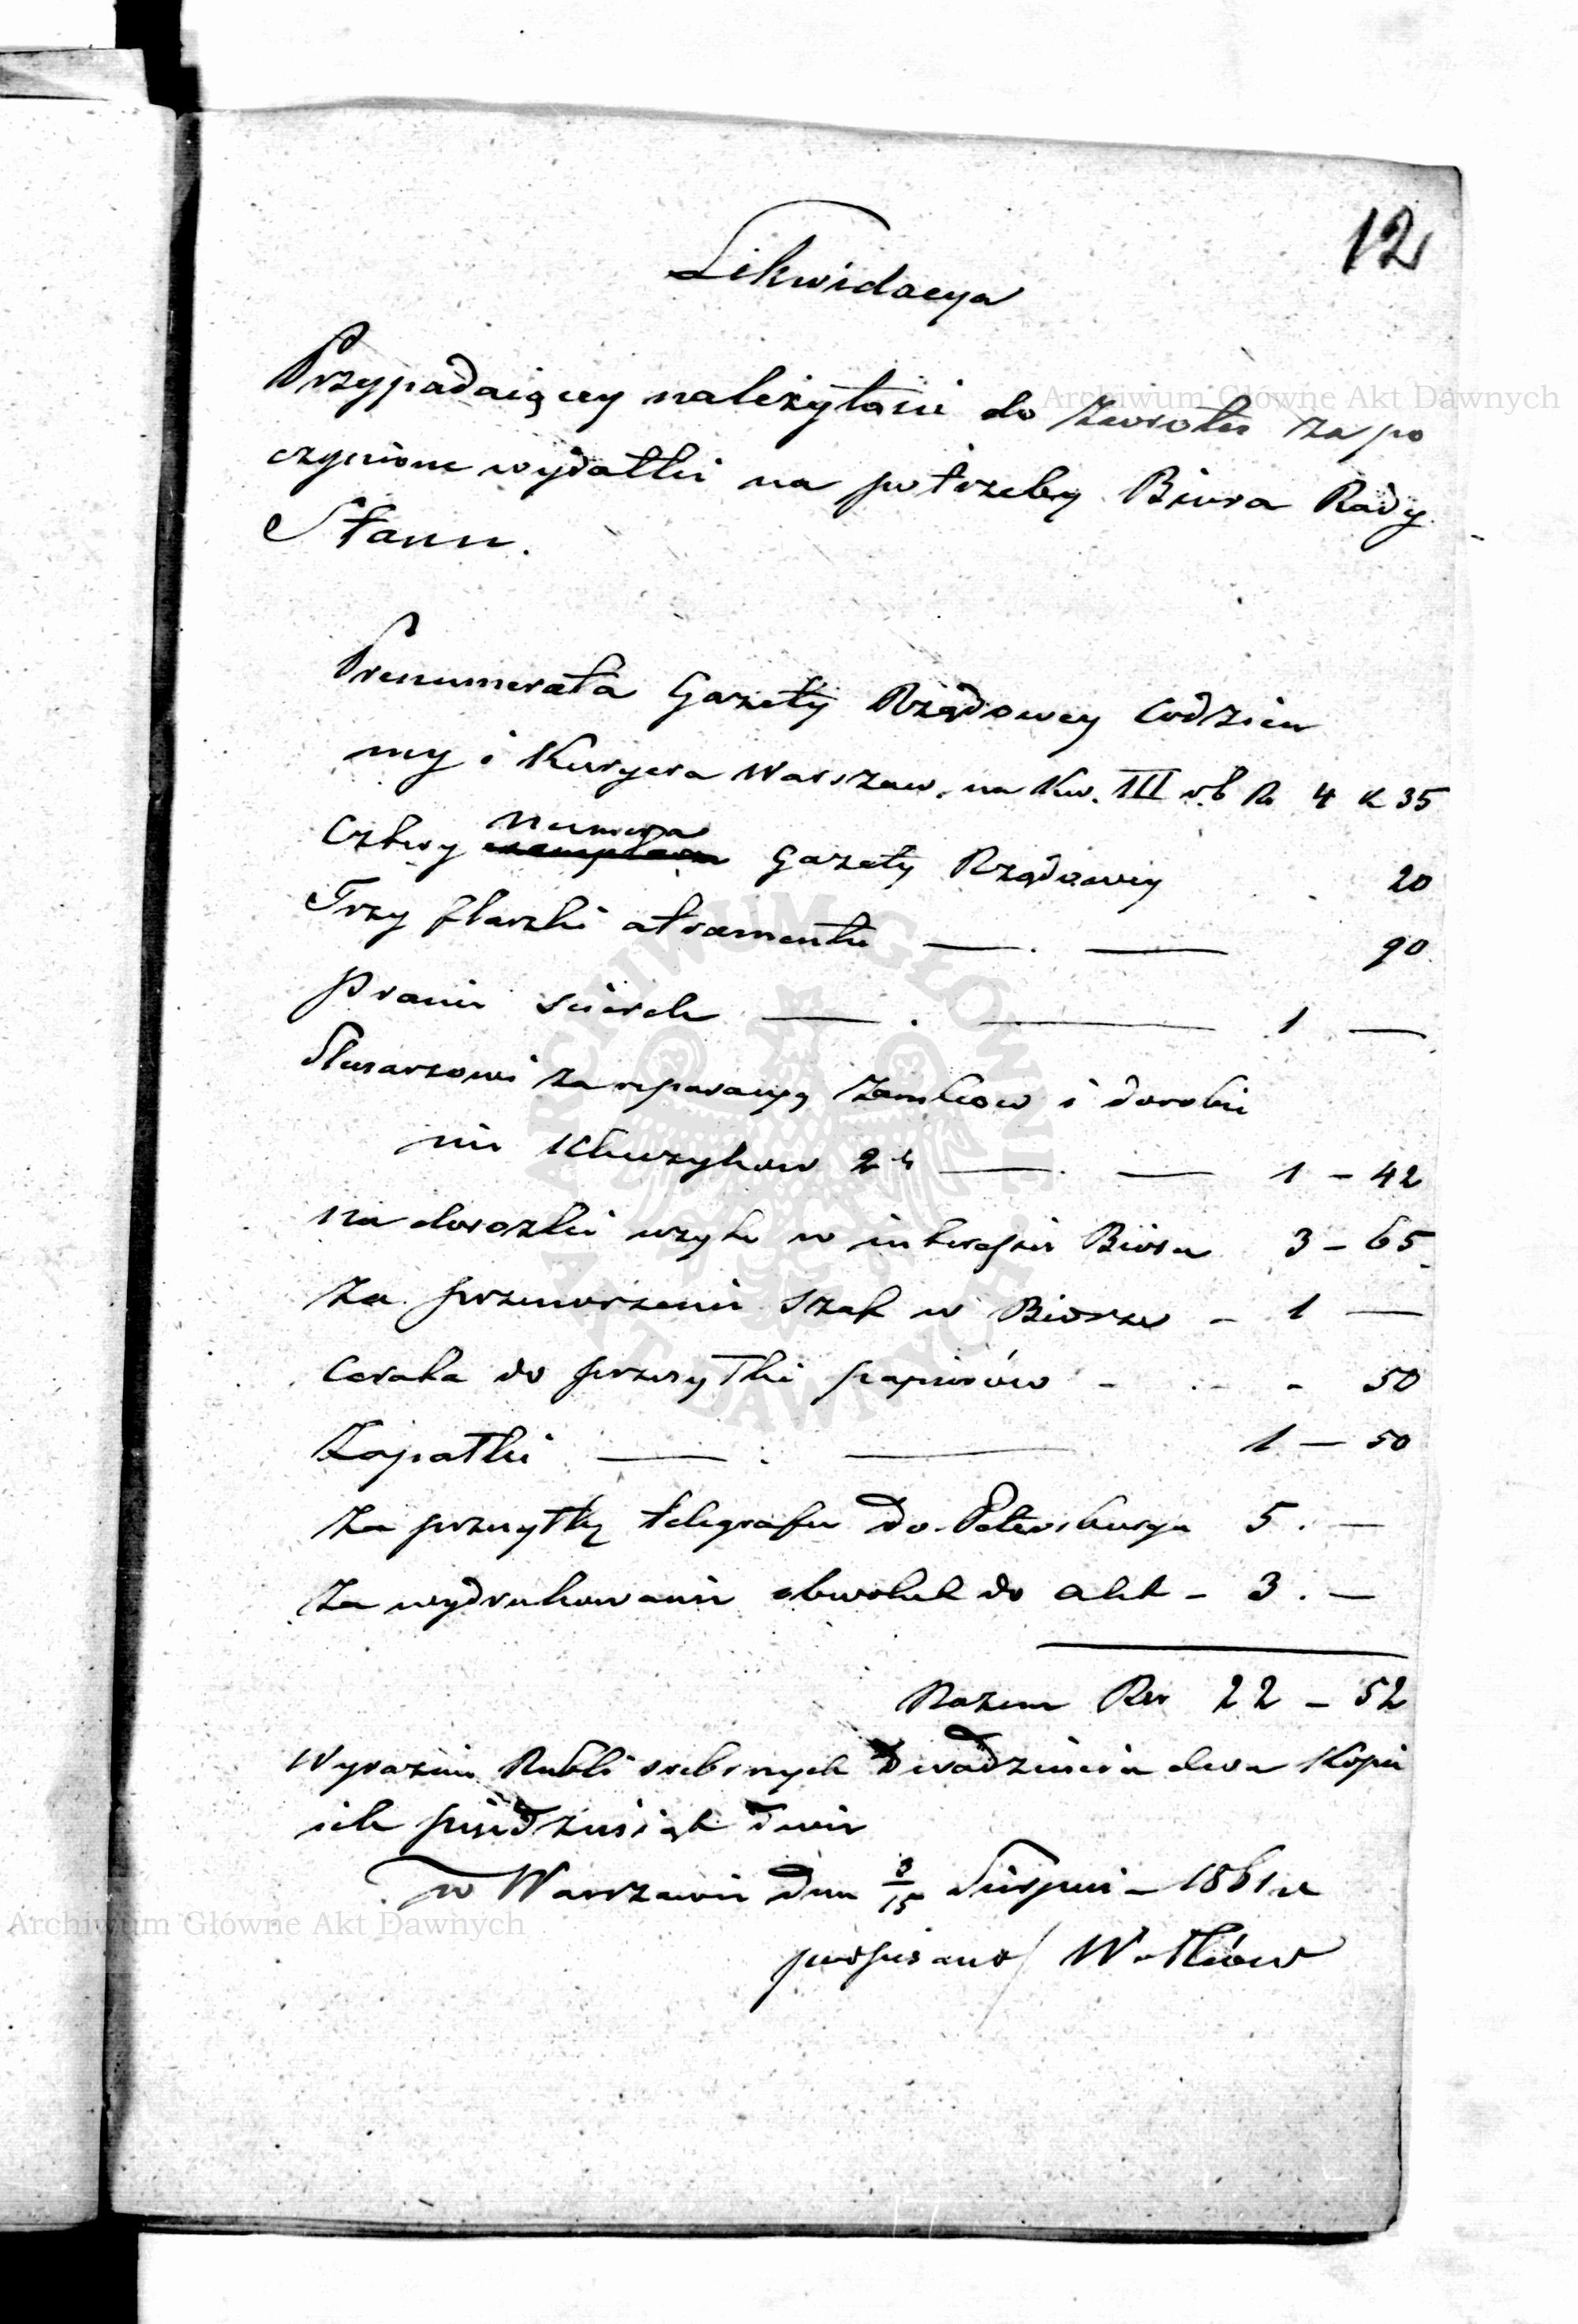 12
Likwidacya
Przypadaiącey należytości do zwrotu za po
czynione wydatki na potrzeby Biura Rady
Stanu.
Prenumerata Gazety Rządowey Codzien
ney i Kuryera Warszaw. na Kw. III r.b Rs 4 k 35
Cztery Numera Gazety Rządowey 20
Trzy flaszki atramentu — . — 90
Pranie ścierek — . — 1 —
Slusarzowi za reparacyą zamków i dorobie
nie kluczyków 2ch — . — 1 – 42
na dorożki użyte w interessie Biura 3 – 65
Za przenoszenie szaf w Biurze – 1 —
Cerata do przesyłki papierów - - - 50
Zapałki — : — 1 — 50
Za przesyłkę telegrafu do Petersburga 5 . —
Za wydrukowanie obwolut do akt – 3 . —
Razem Rsr 22 – 52
Wyraźnie Rubli srebrnych Dwadzieścia dwa Kopie
iek pięćdziesiąt dwie
w Warszawie dnia 3/15 Sierpnia 1861 r.
podpisano/
Archiwum Główne Akt Dawnych
ARCHIWUM GŁÓWNE AKT DAWNYCH
Archiwum Główne Akt Dawnych